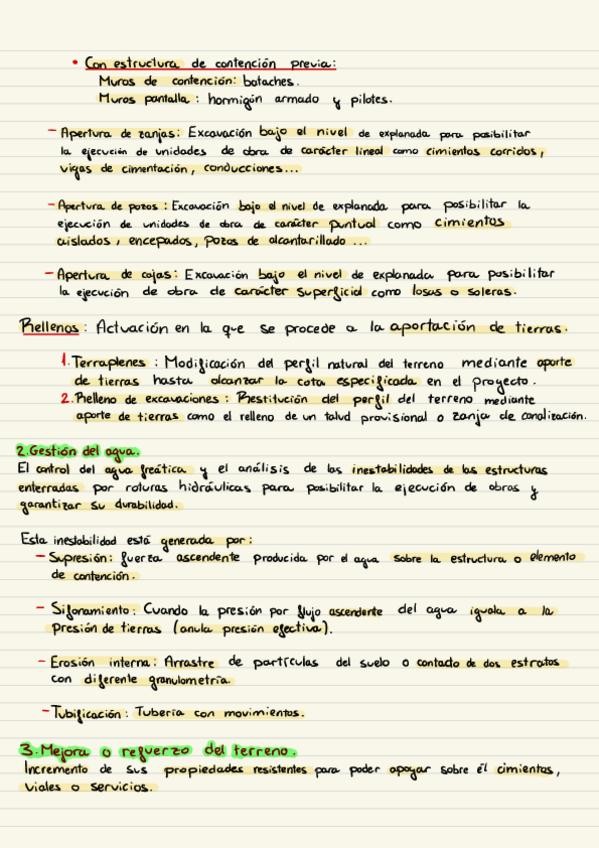 • Con estructura de contención previa:
Muros de contención: bataches.
Muros pantalla: hormigón armado y pilotes.
- Apertura de zanjas: Excavación bajo el nivel de explanada para posibilitar
la ejecución de unidades de obra de carácter lineal como cimientos corridos,
vigas de cimentación, conducciones...
- Apertura de pozos: Excavación bajo el nivel de explanada para posibilitar la
ejecución de unidades de obra de carácter puntual como cimientos
aislados, encepados, pozos de alcantarillado ...
- Apertura de cajas: Excavación bajo el nivel de explanada para posibilitar
la ejecución de obra de carácter superficial como losas o soleras.
Rellenos: Actuación en la que se procede a la aportación de tierras.
1. Terraplenes: Modificación del perfil natural del terreno mediante aporte
de tierras hasta alcanzar la cota especificada en el proyecto.
2. Relleno de excavaciones: Restitución del perfil del terreno mediante
aporte de tierras como el relleno de un talud provisional o zanja de canalización.
2. Gestión del agua.
El control del agua freática y el análisis de las inestabilidades de las estructuras
enterradas por roturas hidráulicas para posibilitar la ejecución de obras y
garantizar su durabilidad.
Esta inestabilidad está generada por:
- Supresión: fuerza ascendente producida por el agua sobre la estructura o elemento
de contención.
- Sifonamiento: Cuando la presión por flujo ascendente del agua iguala a la
presión de tierras (anula presión efectiva).
- Erosión interna: Arrastre de partículas del suelo o contacto de dos estratos
con diferente granulometría.
- Tubificación: Tubería con movimientos.
3. Mejora o refuerzo del terreno.
Incremento de sus propiedades resistentes para poder apoyar sobre él cimientos,
viales o servicios.